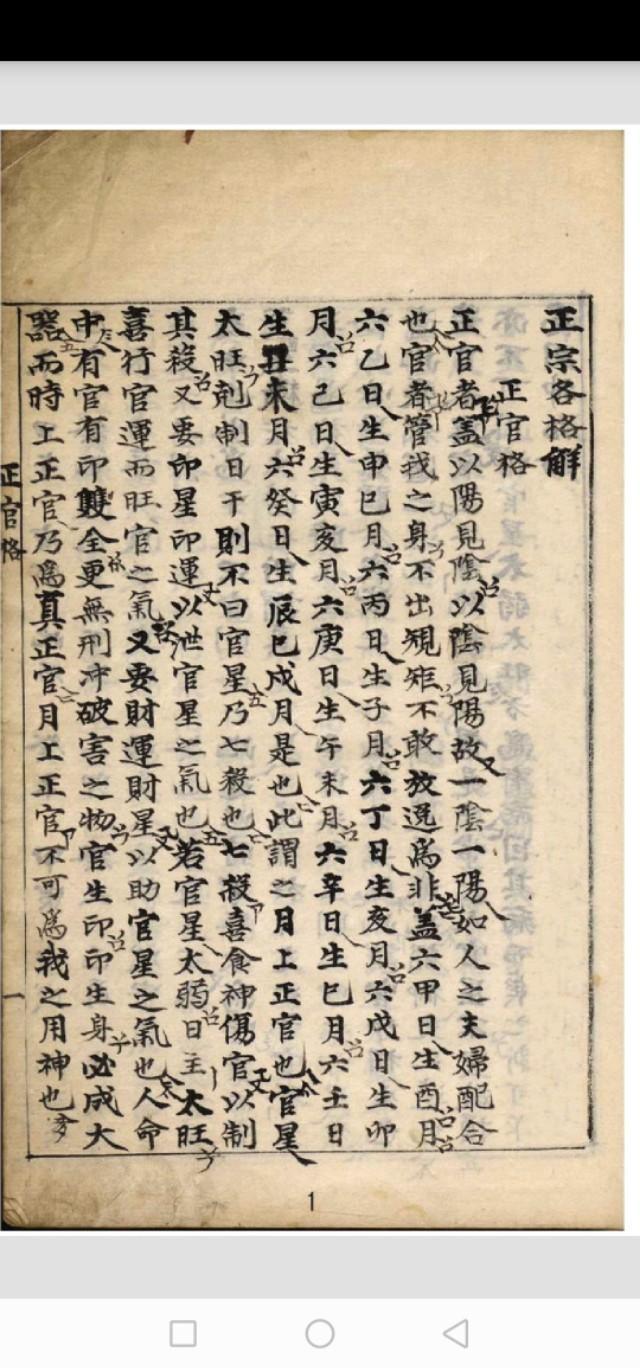 正宗各格解
正官格
正官者盖以陽見陰以陰見陽故一陰一陽如人之夫婦配合
也官者管我之身不出規矩不敢放逸爲非盖六甲日生酉月
六乙日生申巳月六丙日生子月六丁日生亥月六戊日生卯
月六己日生寅亥月六庚日生午未月六辛日生巳月六壬日
生丑未月六癸日生辰巳戍月是也此謂之月上正官也官星
太旺剋制日干則不曰官星乃七殺也七殺喜食神傷官以制
其殺又要印星印運以泄官星之氣也若官星太弱日主太旺
喜行官運而旺官之氣又要財運財星以助官星之氣也人命
中有官有印雙全更無刑冲破害之物官生印印生身必成大
器而時上正官乃爲真正官月上正官不可爲我之用神也
正官格
一
1